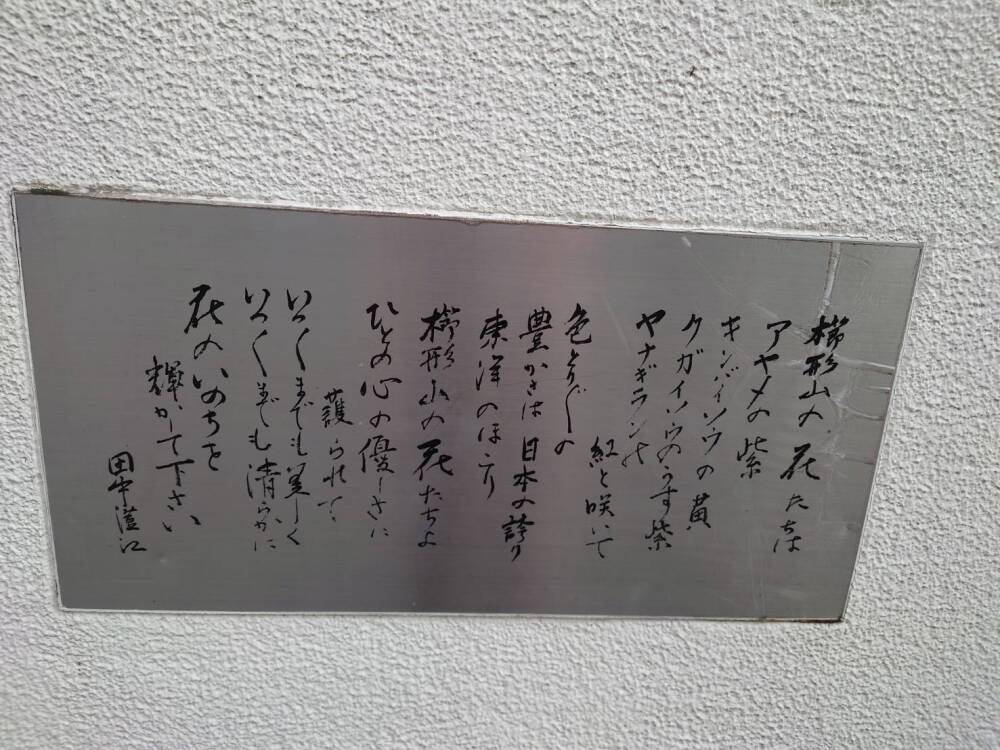 櫛形山の花たちは
アヤメの紫
キンバイソウの黄
クガイソウのうす紫
ヤナギランの
紅と咲いて
色とりどりの
豊かさは日本の誇り
東洋のほこり
櫛形山の花たちよ
ひとの心の優しさに
護られて
いついつまでも美しく
いついつまでも清らかに
花のいのちを
輝かせて下さい
田中澄江